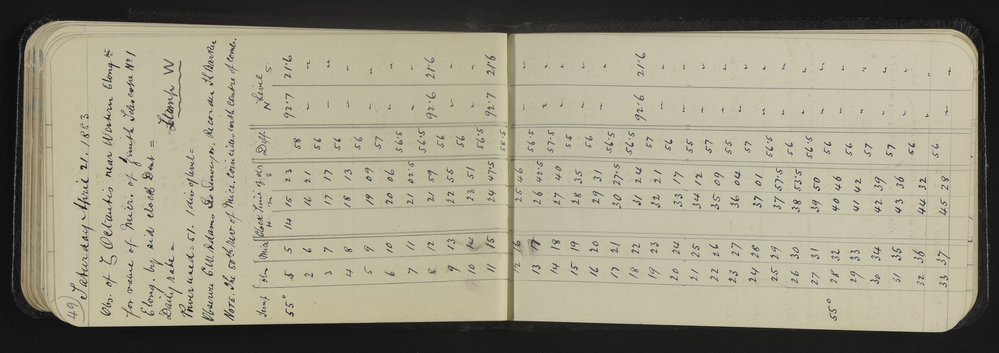 49
Saturday April 21. 1883
Obs. of ζ Octantis near Western Elongtn
for value of Micr. of Zenith Telescope No 1
Elong. by sid clock Dent =
Daily rate = Lamp W
Power used = 51. 1 div of level =
Observer C.W. Adams Geo. Surveyor. Recorder H Barker
NOTE. The 50th rev of Micr. coincides with centre of comb.
Temp Obs Micr Clock Time of obs Diff. Level
H m s N S
55° 5 14 15 23 58 92.7 21.6
2 6 16 21 56 " "
3 7 17 17 56 " "
4 8 18 13 56 " "
5 9 19 09 57 " "
6 10 20 06 56.5 " "
7 11 21 02.5 56.5 " "
8 12 21 59 56 92.6 21.6
9 13 22 55 56 " "
10 14 23 51 56.5 " "
11 15 24 47.5 58.5 92.7 21.6
12 16 25 46 56.5 " "
13 17 26 42.5 57.5 " "
14 18 27 40 55 " "
15 19 28 35 56 " "
16 20 29 31 56.5 " "
17 21 30 27.5 56.5 " "
18 22 31 24 57 92.6 21.6
19 23 32 21 56 " "
20 24 33 17 55 " "
21 25 34 12 57 " "
22 26 35 09 55 " "
23 27 36 04 57 " "
24 28 37 01 56.5 " "
25 29 37 57.5 56 " "
26 30 38 53.5 56.5 " "
27 31 39 50 56 " "
55° 28 32 40 46 56 " "
29 33 41 42 57 " "
30 34 42 39 57 " "
31 35 43 36 56 " "
32 36 44 32 56 " "
33 37 45 28